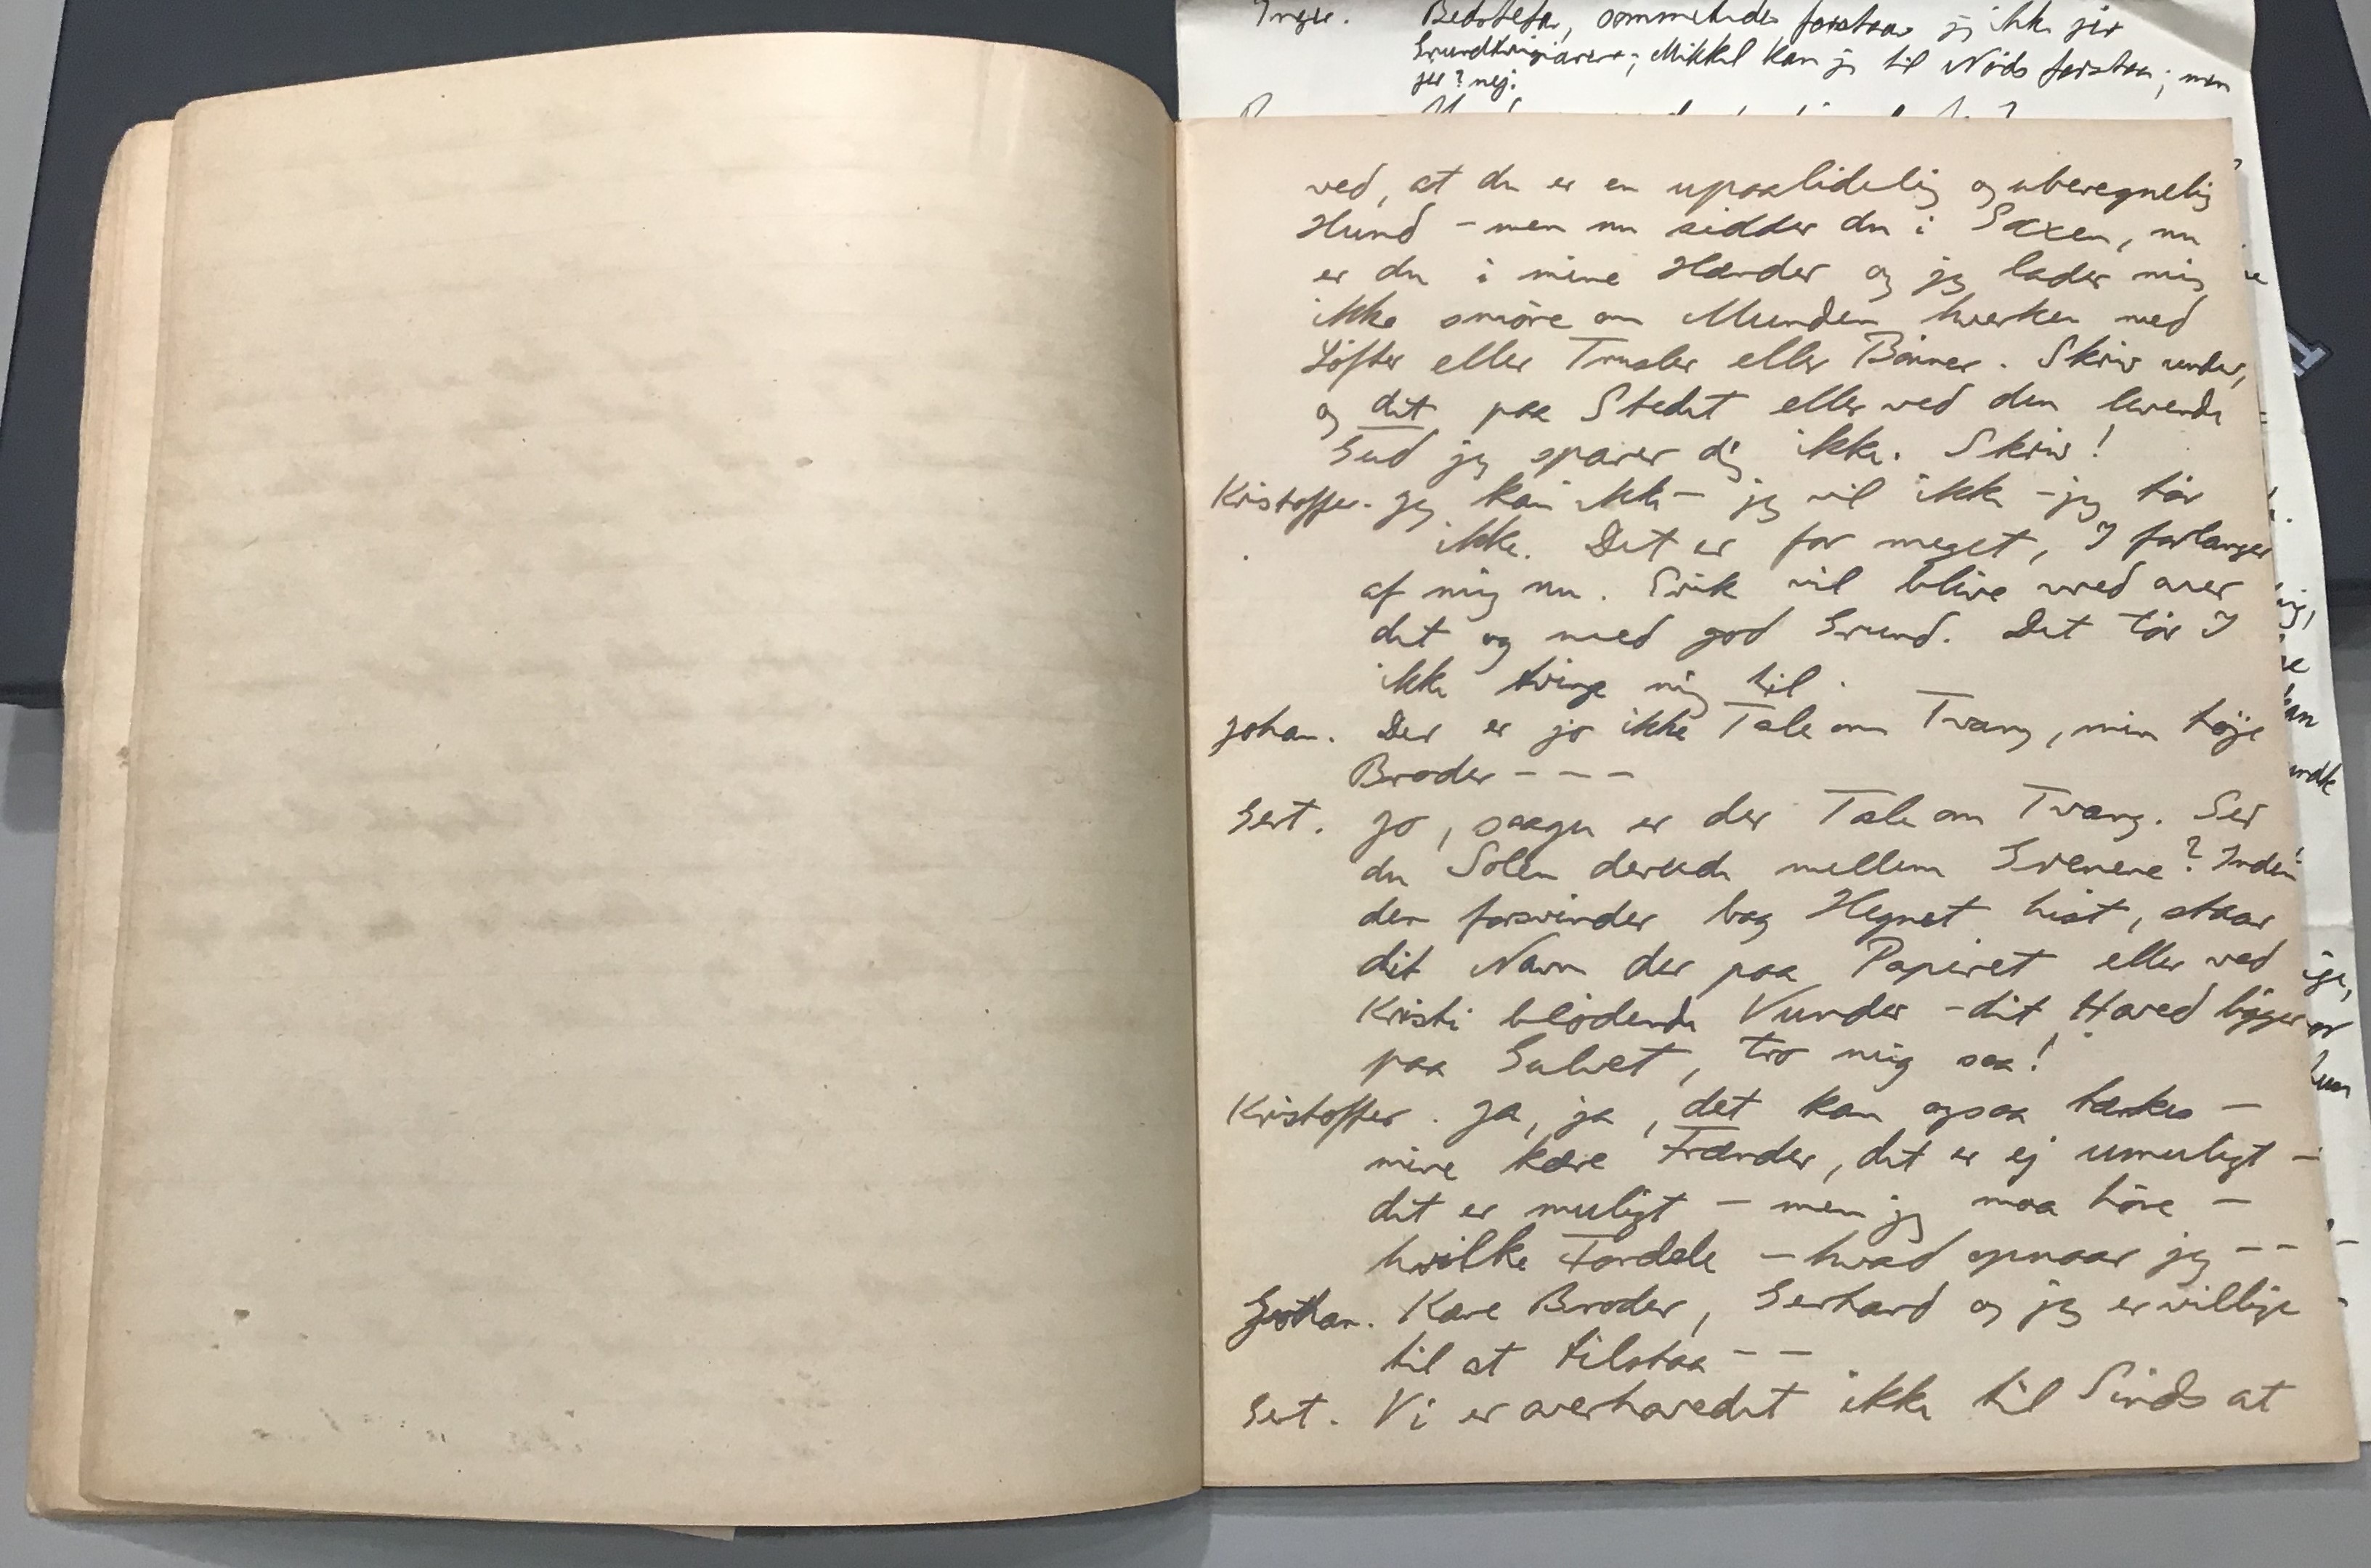 Inger. Bedstefar, sommetider forstaar jeg ikke jer
Grundtvigianere; Mikkel kan jeg til Nöds forstaa; men
jer? nej.
ved, at du er en upaalidelig og uberegnelig
Hund - men nu sidder du i Saxen, nu
er du i mine Hænder og jeg lader mig
ikke smöre om Munden hverken med
Löfter eller Trusler eller Bönner. Skriv under,
og det paa Stedet eller ved den levende
Gud jeg sparer dig ikke. Skriv!
Kristoffer. Jeg kan ikke - jeg vil ikke - jeg tör
ikke. Det er for meget, I forlanger
af mig nu. Erik vil blive vred over
det og med god Grund. Det tör I
ikke tvinge mig til.
Johan. Der er jo ikke Tale om Tvang, min höje
Broder - - -
Gert. Jo, saagu er der Tale om Tvang. Ser
du Solen derude mellem Grenene? Inden
den forsvinder bag Hegnet hist, staar
dit Navn der paa Papiret eller ved
Kristi blödende Vunder - dit Hoved ligger
paa Gulvet, tro mig saa!
Kristoffer. Ja, ja, det kan ogsaa tænkes -
mine kære Frænder, det er ej umuligt -
det er muligt - men jeg maa höre -
hvilke Fordele - hvad opnaar jeg - - -
Johan. Kære Broder, Gerhard og jeg er villige
til at tilstaa - -
Gert. Vi er overhovedet ikke til Sinds at